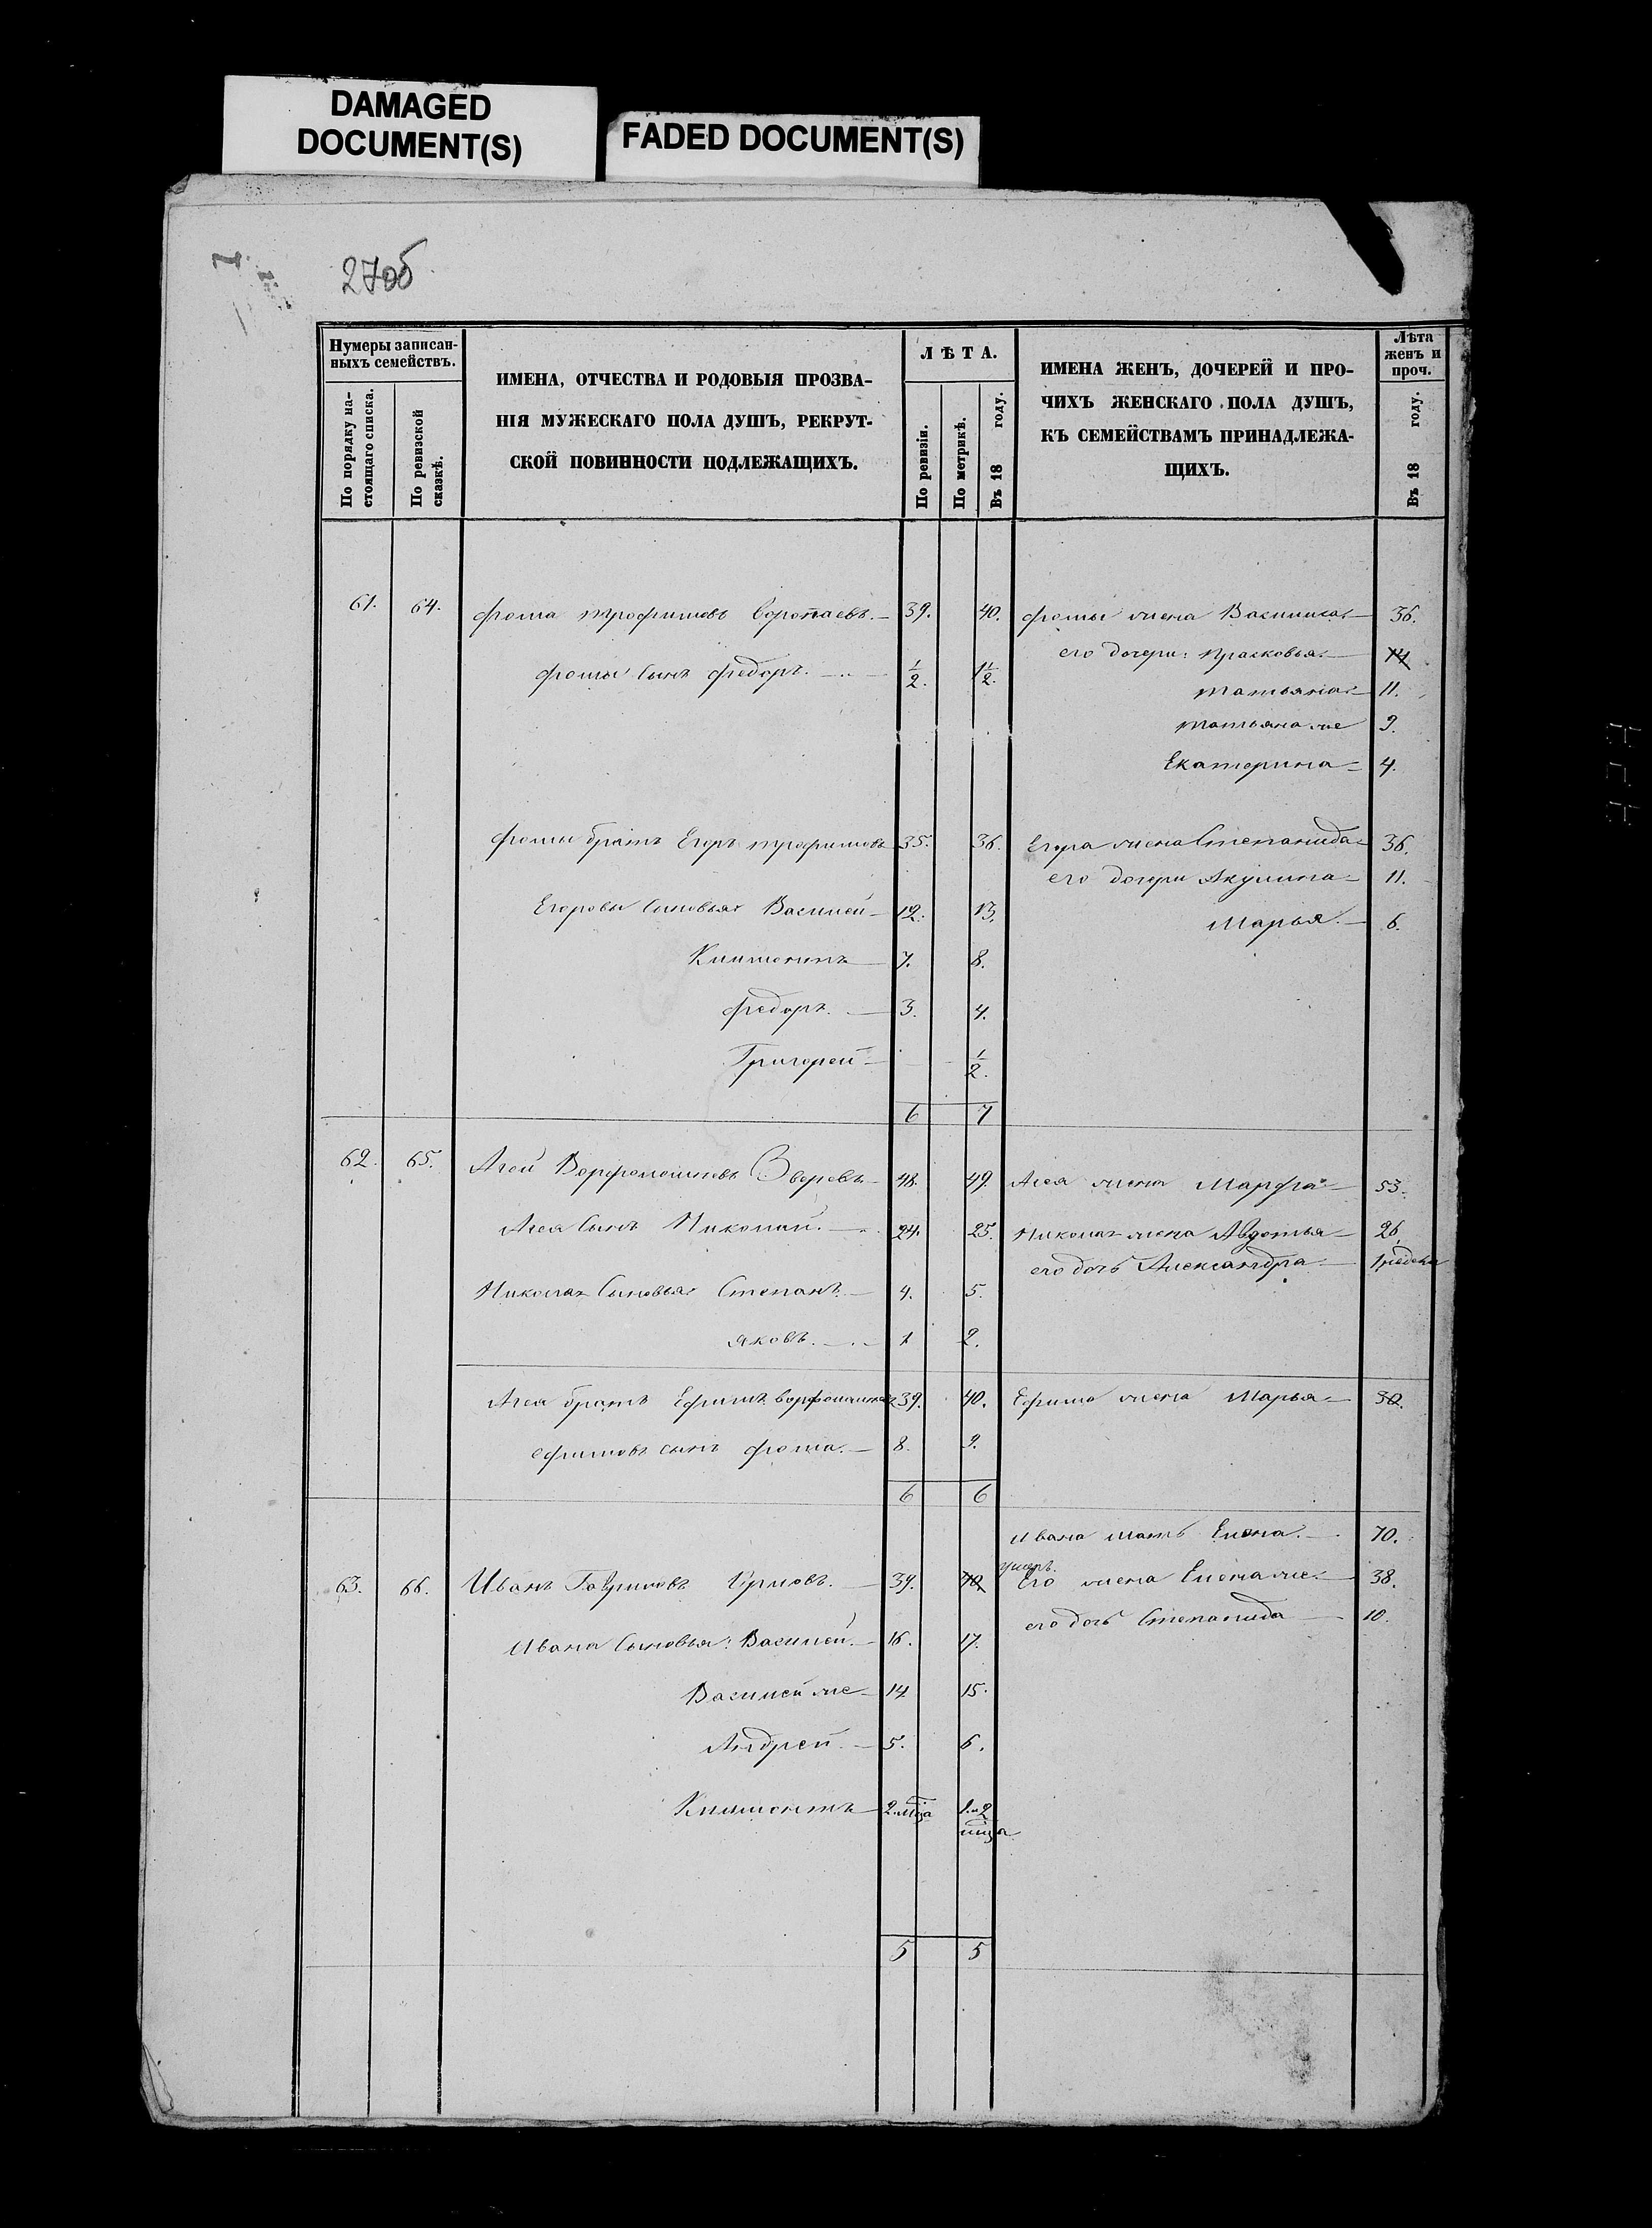 DAMAGED
DOCUMENT(S)
FADED DOCUMENT(S)
27об
Нумеры записан-
ныхъ семействъ.
По порядку на-
стоящаго списка.
По ревизской
сказкѣ.
ИМЕНА, ОТЧЕСТВА И РОДОВЫЯ ПРОЗВА-
НІЯ МУЖЕСКАГО ПОЛА ДУШЪ, РЕКРУТ-
СКОЙ ПОВИННОСТИ ПОДЛЕЖАЩИХЪ.
ЛѢТА.
По ревизіи.
По метрикѣ.
Въ 18 году.
ИМЕНА ЖЕНЪ, ДОЧЕРЕЙ И ПРО-
ЧИХЪ ЖЕНСКАГО ПОЛА ДУШЪ,
КЪ СЕМЕЙСТВАМЪ ПРИНАДЛЕЖА-
ЩИХЪ.
Лѣта
женъ и
проч.
Въ 18 году.
61. 64. Фома Трофимовъ Воропаевъ. 39. 40. Фомы жена Василиса 36.
его дочери: Прасковья 14
Фомы Сынъ Федоръ. 1/2. 1 1/2.
Татьяна 11.
Татьяна же 9.
Екатерина 4.
Фомы братъ Егоръ Трофимовъ 35. 36. Егора жена Степанида 36.
его дочери Акулина 11.
Егоровы Сыновья Василей 12. 13. Марья. 6.
Климентъ 7. 8.
Федоръ. 3. 4.
Григорей 1/2.
6 7
62. 65. Агей Ворфоломеевъ Зверевъ 48. 49. Агея жена Марфа 53.
Агея Сынъ Николай. 24. 25. Николая жена Авдотья 26.
его дочь Александра
Николая Сыновья Степанъ 4. 5.
Яковъ. 1 2.
Агея братъ Ефимъ 39. 40. Ефима жена Марья 30.
Ефимовъ сынъ Фома. 8. 9.
6 6
Ивана мать Елена. 70.
умеръ.
63. 66. Иванъ Гавриловъ 39. 40 Его жена Елена же. 38.
его дочь Степанида 10.
Ивана Сыновья: Василей. 16. 17.
Василей же 14 15.
Андрей 5. 6.
Климентъ 2. мца 1. и 2
мца
5 5